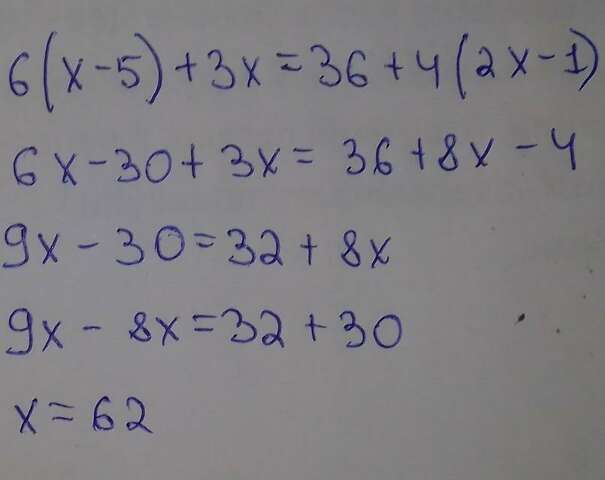 6(x-5)+3x=36+4(2x-1)
6x-30+3x=36+8x-4
9x-30=32+8x
9x-8x=32+30
x=62